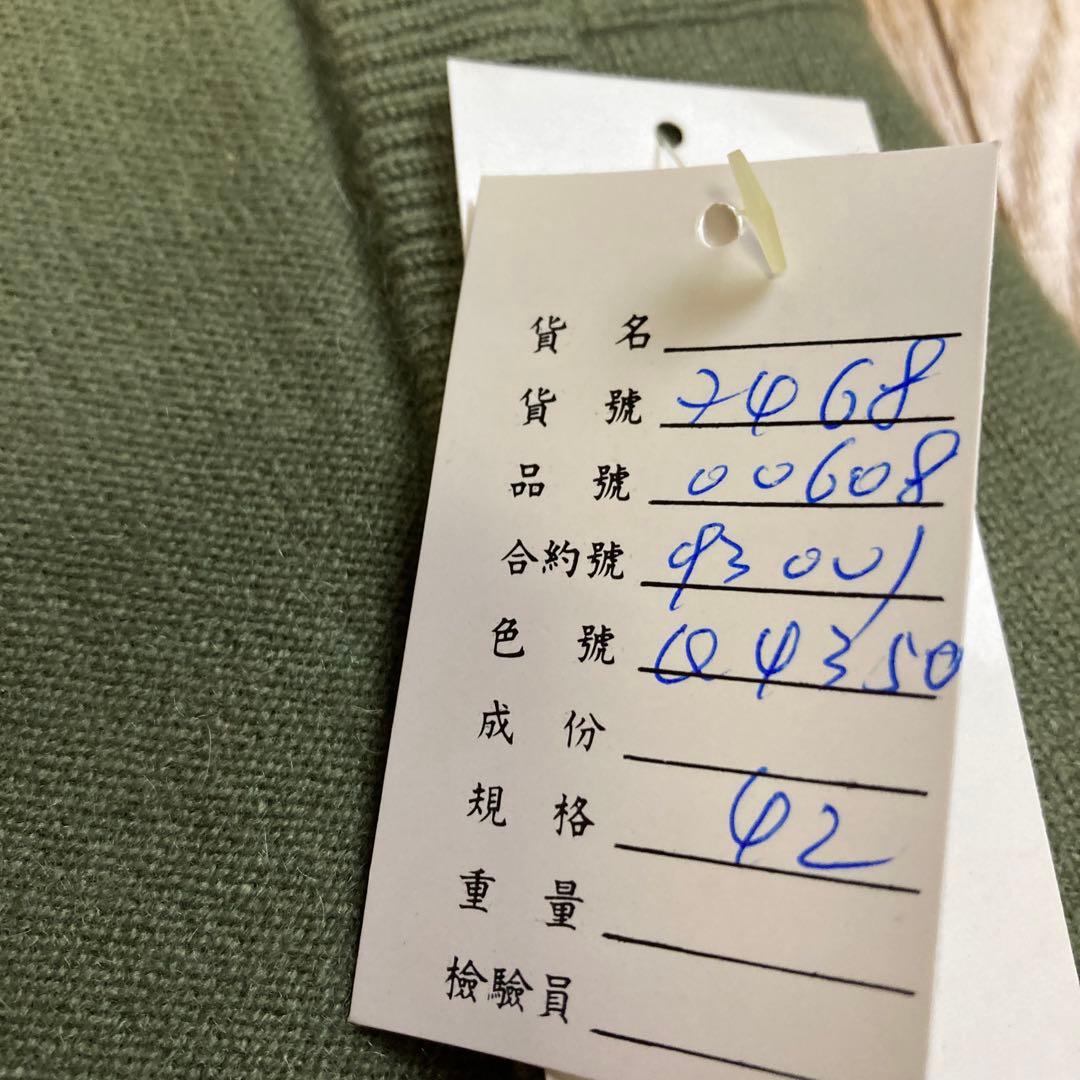 貨名
貨號 7468
品號 00608
合約號 93001
色號 04350
成份
規格 42
重量
檢驗員